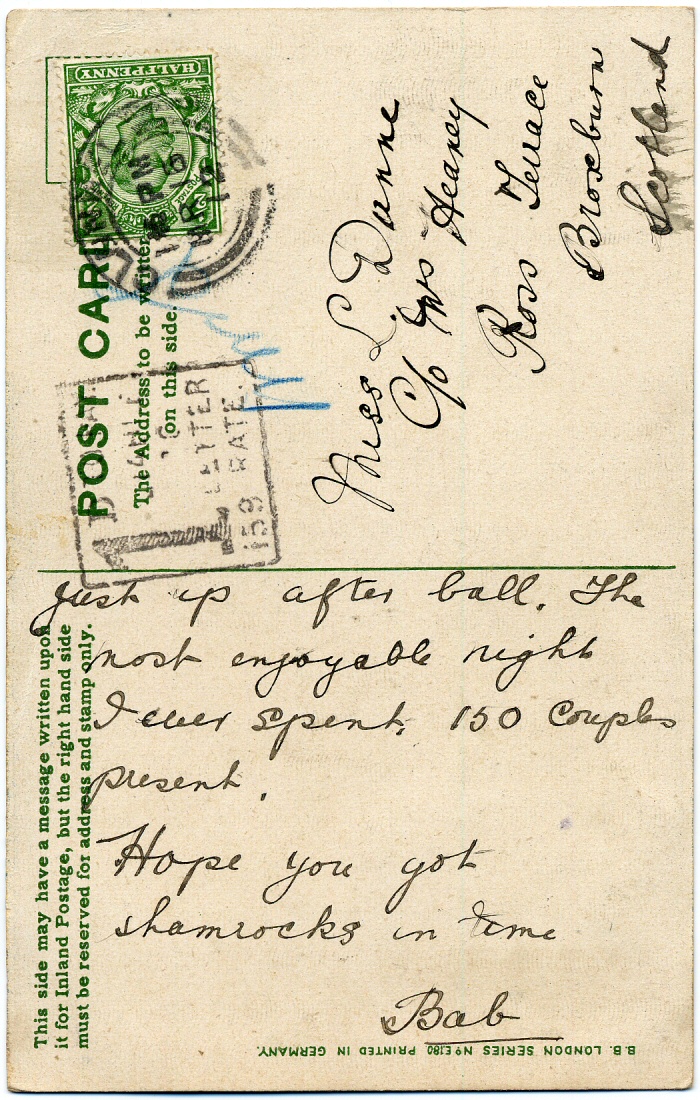 HALFPENNY
POST CARD
The Address to be written
on this side.
PM
16
12
1
LETTER
RATE.
159
Miss L. Dunne
C/o Mrs Heaney
Ross Terrace
Broxburn
Scotland
This side may have a message written upon
it for Inland Postage, but the right hand side
must be reserved for address and stamp only.
Just up after ball. The
most enjoyable night
I ever spent. 150 couples
present.
Hope you got
shamrocks in time
Bab
B.B. LONDON SERIES Nº E180 PRINTED IN GERMANY.